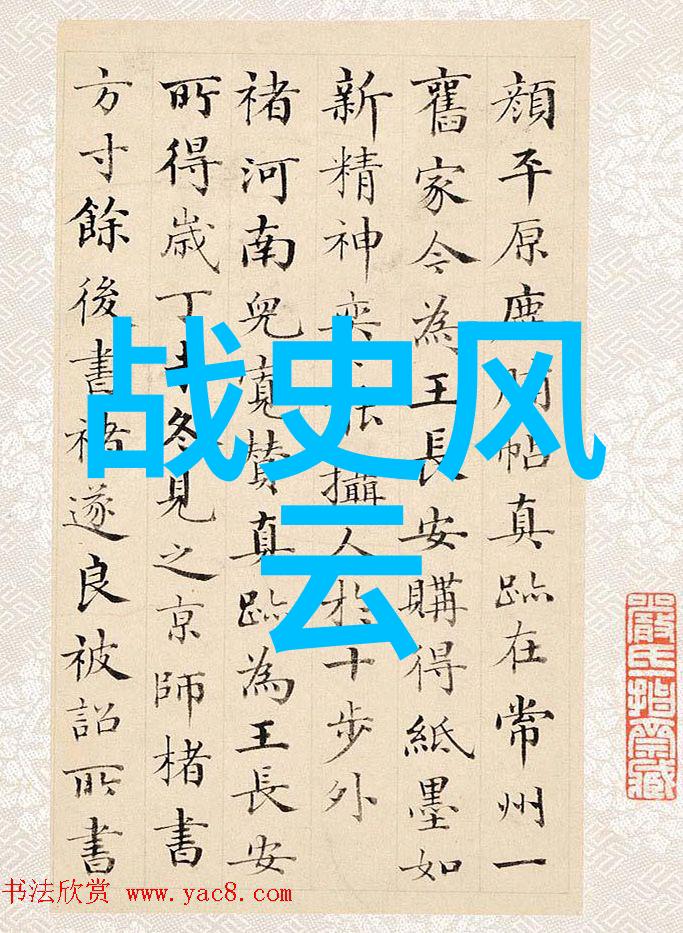 顔平原鹿脯帖真跡在常州一
舊家今為王長安購得紙墨如
新精神奕攝人於十步外
褚河南兒寬贊真跡為王長安
所得歲丁丑冬見之京師楮書
方寸餘後書褚遂良被詔所書
战史风
云
嚴氏一指齋藏
书法欣赏 www.yac8.com